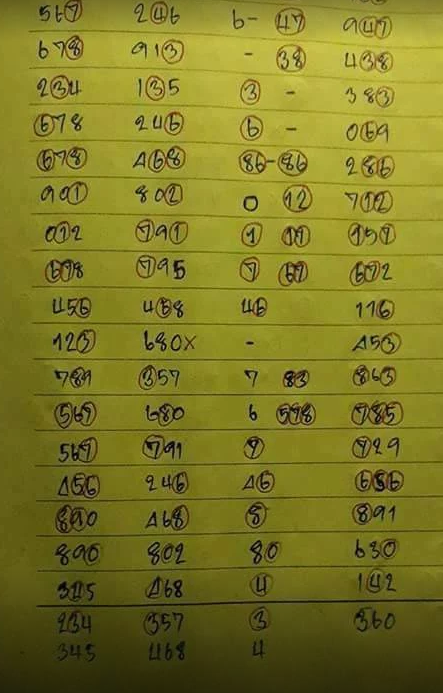 567 246 6- 47 947
678 913 - 38 438
234 135 3 - 383
678 246 6 - 069
678 468 86-86 286
901 802 0 12 712
012 791 1 11 151
678 795 7 67 672
456 468 46 116
123 680x - 453
789 357 7 83 863
567 680 6 578 785
567 791 7 729
456 246 46 656
890 468 8 891
890 802 80 630
345 468 4 142
234 357 3 360
345 468 4